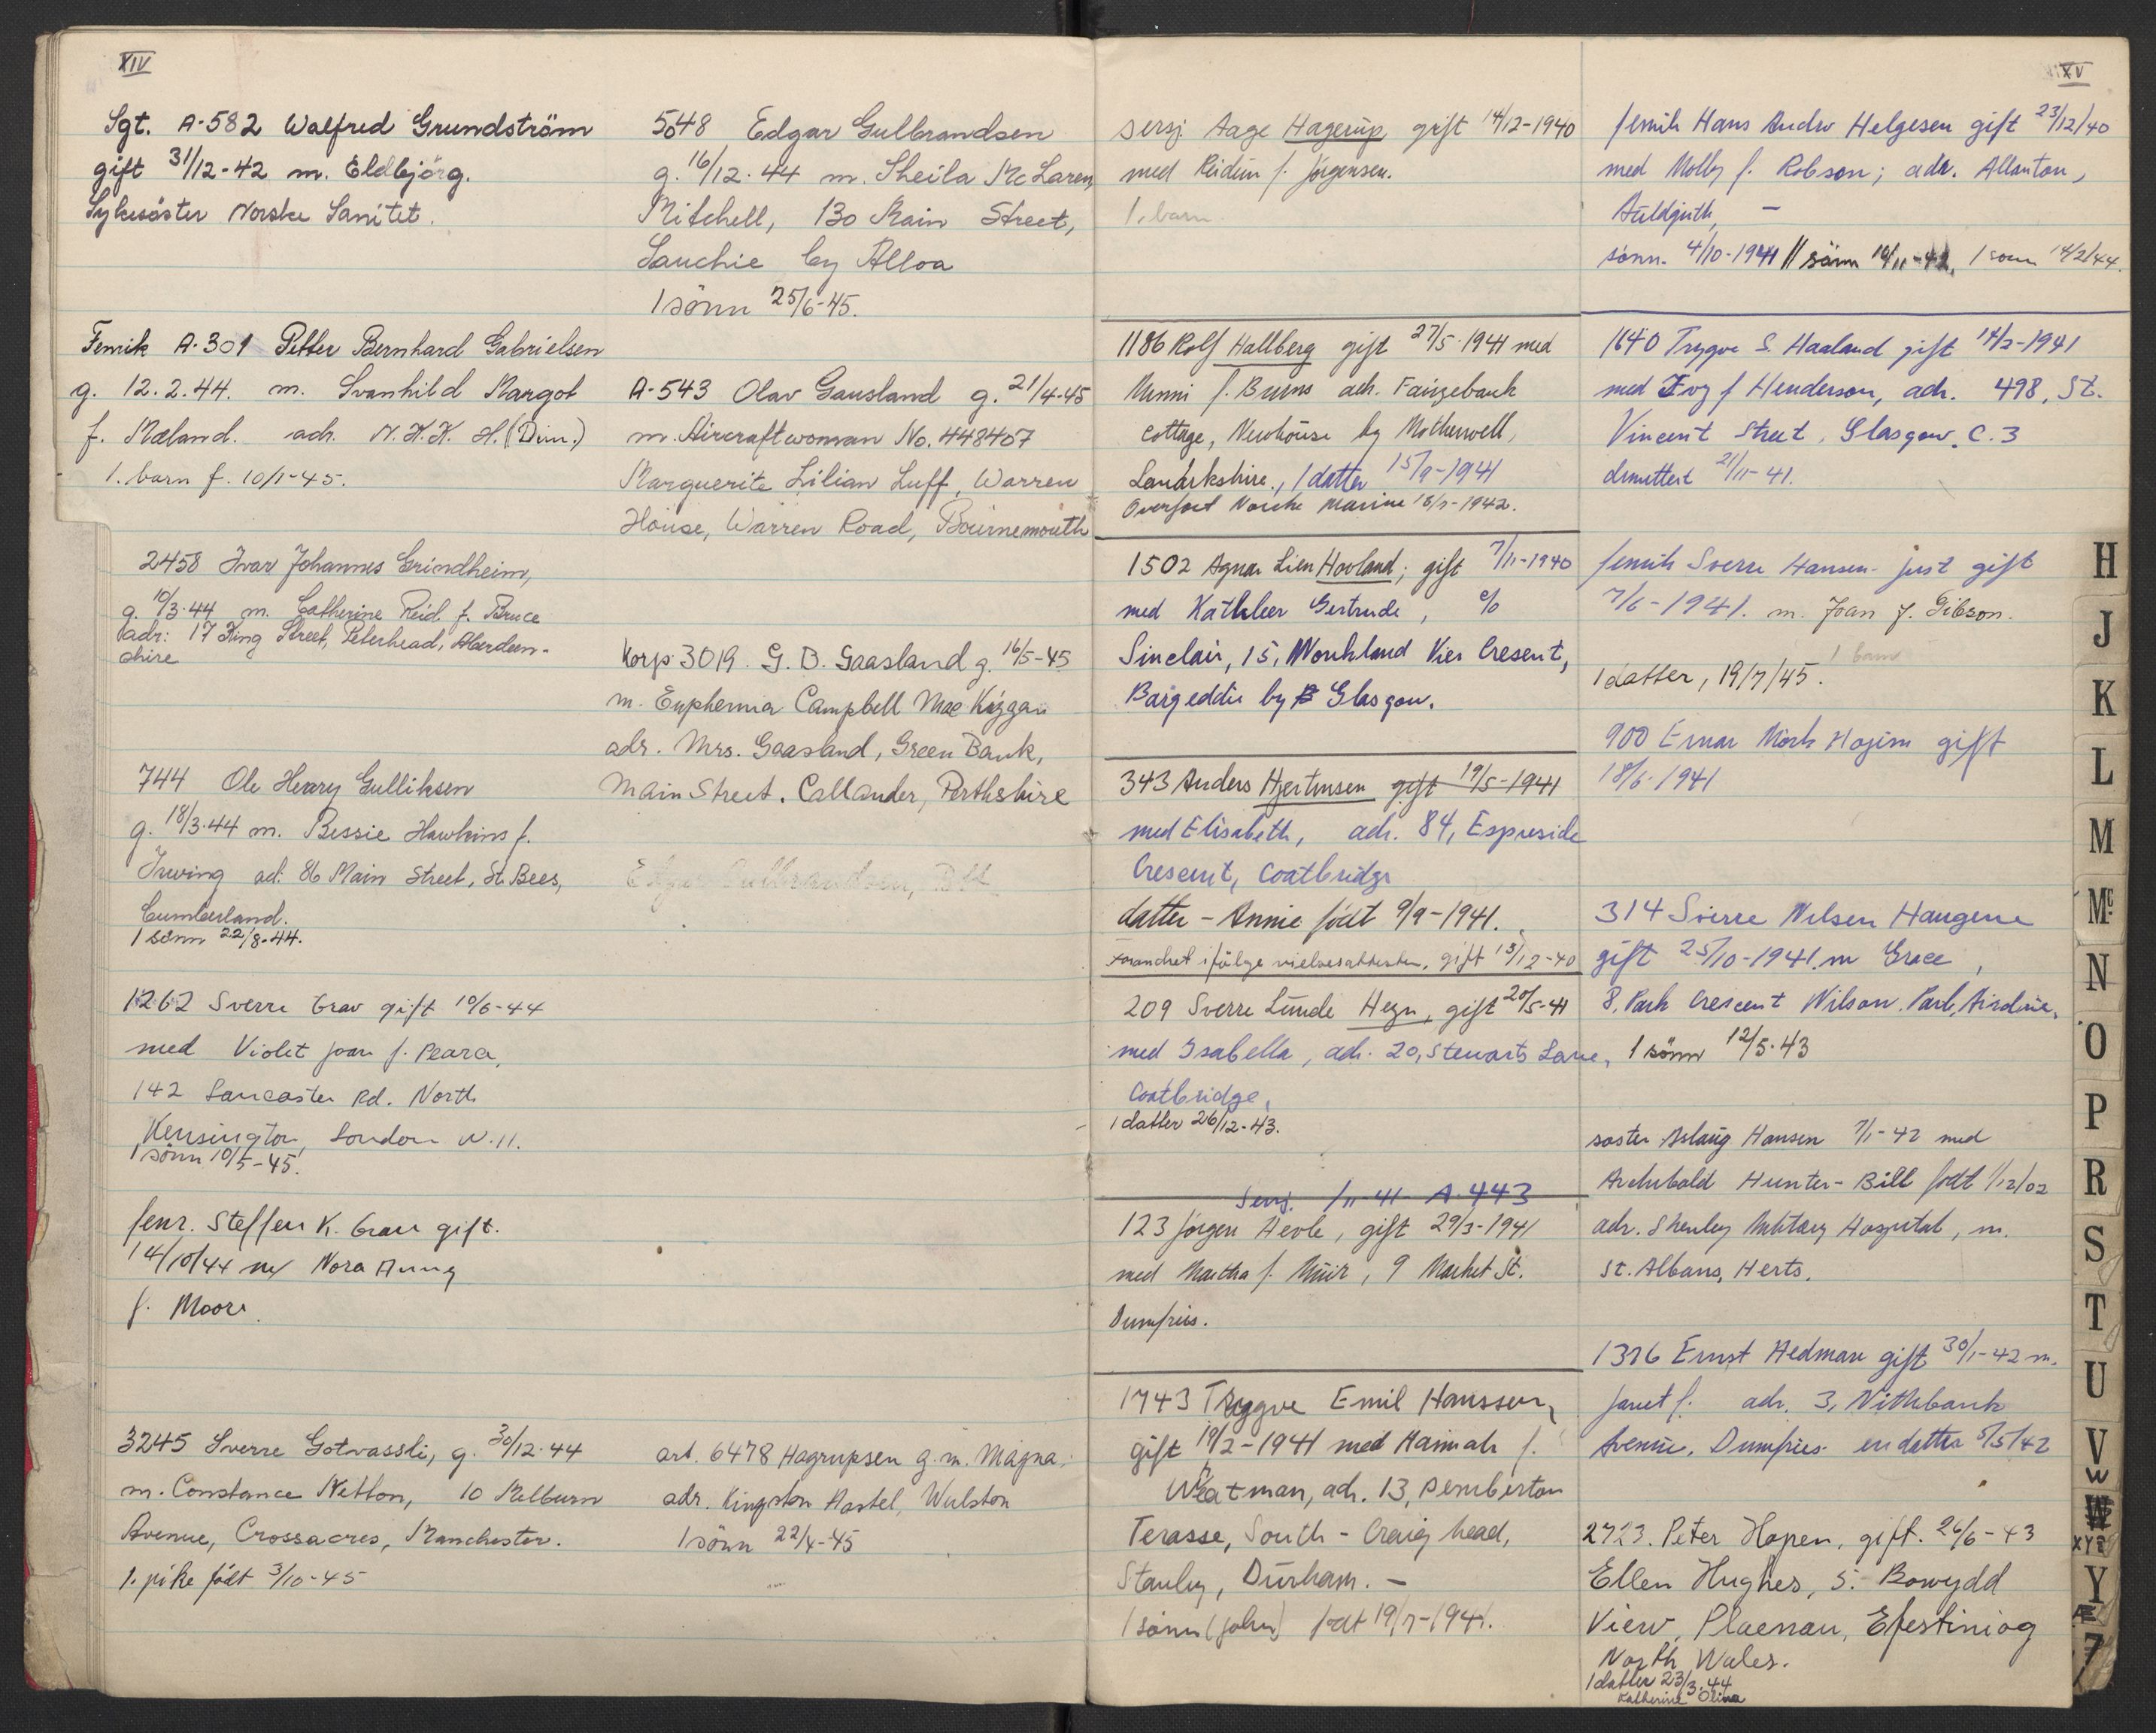 XIV
Sgt. A-582 Walfred Grundström
gift 31/12-42 m. Eldbjörg.
Sykesöster Norske Sanitet.
Fenrik A-301 Petter Bernhard Gabrielsen
g. 12.2.44. m. Svanhild Margot
f. Mæland. adr. N.K.K. H.(Dim.)
1. barn f. 10/1-45.
2458 Ivar Johannes Grindheim,
g. 10/3-44 m. Catherine Reid f. Bruce
adr: 17 King Street, Peterhead, Aberdeen-
shire
744 Ole Henry Gulliksen
g. 18/3-44 m. Bessie Hawkins f.
Irwing ad: 86 Main Street, St. Bees,
Cumberland.
1 sönn 22/8-44.
1262 Sverre Grav gift 10/6-44
med Violet Joan f. Pearce,
142 Lancaster Rd. North
Kensington, London W.11.
1 sönn 10/5-45.
fenr. Steffen K. Grau gift.
14/10/44 m/ Nora Anny
f. Moore.
3245 Sverre Gotvassli, g. 30/12-44
m. Constance Netton, 10 Melburn
Avenue, Crossacres, Manchester.
1. pike födt 3/10-45
5048 Edgar Gulbrandsen
g. 16/12-44 m. Sheila McLaren
Mitchell, 130 Main Street,
Sauchie by Alloa
1 sönn 25/6-45.
A-543 Olav Gausland g. 21/4-45
m. Aircraftwoman No. 448407
Marguerite Lilian Luff, Warren
House, Warren Road, Bournemouth
Korp 3019. G. B. Gaasland g. 16/5-45
m. Euphemia Campbell Mac Kiggan
adr. Mrs. Gaasland, Green Bank,
Main Street. Callander, Perthshire
Edgar Gulbrandsen,
art. 6478 Hagrupsen g. m. Magna,
adr. Kingston Hostel, Wulston
1 sönn 22/4-45
XV
sersj Aage Hagerup gift 14/12-1940
med Reidun f. Jörgensen.
1. barn
1186 Rolf Hallberg gift 27/5-1941 med
Minni f. Burns adr. Fairgebank
Cottage, Newhouse by Motherwell,
Lanarkshire., 1 datter 15/9-1941
Overfört Norske Marine 18/3-1942.
1502 Agnar Lien Hovland; gift 7/11-1940
med Kathleer Gertrude, c/o
Sinclair, 15, Monkland Vier Cresent,
Bargeddie by Glasgow.
343 Anders Hjertmsen gift 19/5-1941
med Elisabeth, adr. 84, Espieside
Cresent, Coatbridge
datter - Annie födt 9/9-1941.
Forandret ifölge vielsesattesten, gift 13/12-40
209 Sverre Lunde Hegn, gift 20/5-41
med Isabella, adr. 20, Stewarts Lane,
Coatbridge,
1 datter 26/12-43.
Sersj. 1/11-41 A-443
123 Jörgen Hevle, gift 29/3-1941
med Martha f. Muir, 9 Market St.
Dumfries.
1743 Trygve Emil Hanssen,
gift 19/2-1941 med Hannah f.
Wheatman, adr. 13, Pemberton
Terasse, South - Craig head,
Stanley, Durham. -
1 sönn (John) født 19/7-1941.
fenrik Hans Andrv Helgesen gift 23/12/40
med Molly f. Robson; adr. Allanton,
Auldgirth, -
sönn 4/10-1941 // sönn 10/11-42, 1 sønn 14/2/44.
1640 Trygve S. Haaland gift 14/2-1941
med Ivy f Henderson, adr. 498, St.
Vincent Street, Glasgow. C.3
dimittert 21/11-41.
fenrik Sverre Hansen- just gift
7/6-1941. m. Joan f. Gibson.
1 barn
1 datter, 19/7/45.
900 Einar Mörk Hojem gift
18/6-1941
314 Sverre Nilsen Haugene
gift 25/10-1941. m Grace,
8, Park Crescent Wilson. Park, Airdrie,
1 sönn 12/5-43
søster Aslaug Hansen 7/1-42 med
Archibald Hunter-Bill født 1/12/02
adr. Shenley Military Hospital, m.
St. Albans, Herts.
1326 Ernst Hedman gift 30/1-42 m.
Janet f. adr. 3, Nithbank
Avenue, Dumfries en datter 5/5/42
2723. Peter Hopen, gift. 26/6-43
Ellen Hughes, 5.- Bowydd
View, Plaenau, Efestiniog
North Wales.
1 datter 23/3.44
Katherine Olina
H
J
K
L
M
Mc
N
O
P
R
S
T
U
V
W
W
XYZ
Y
Æ
7